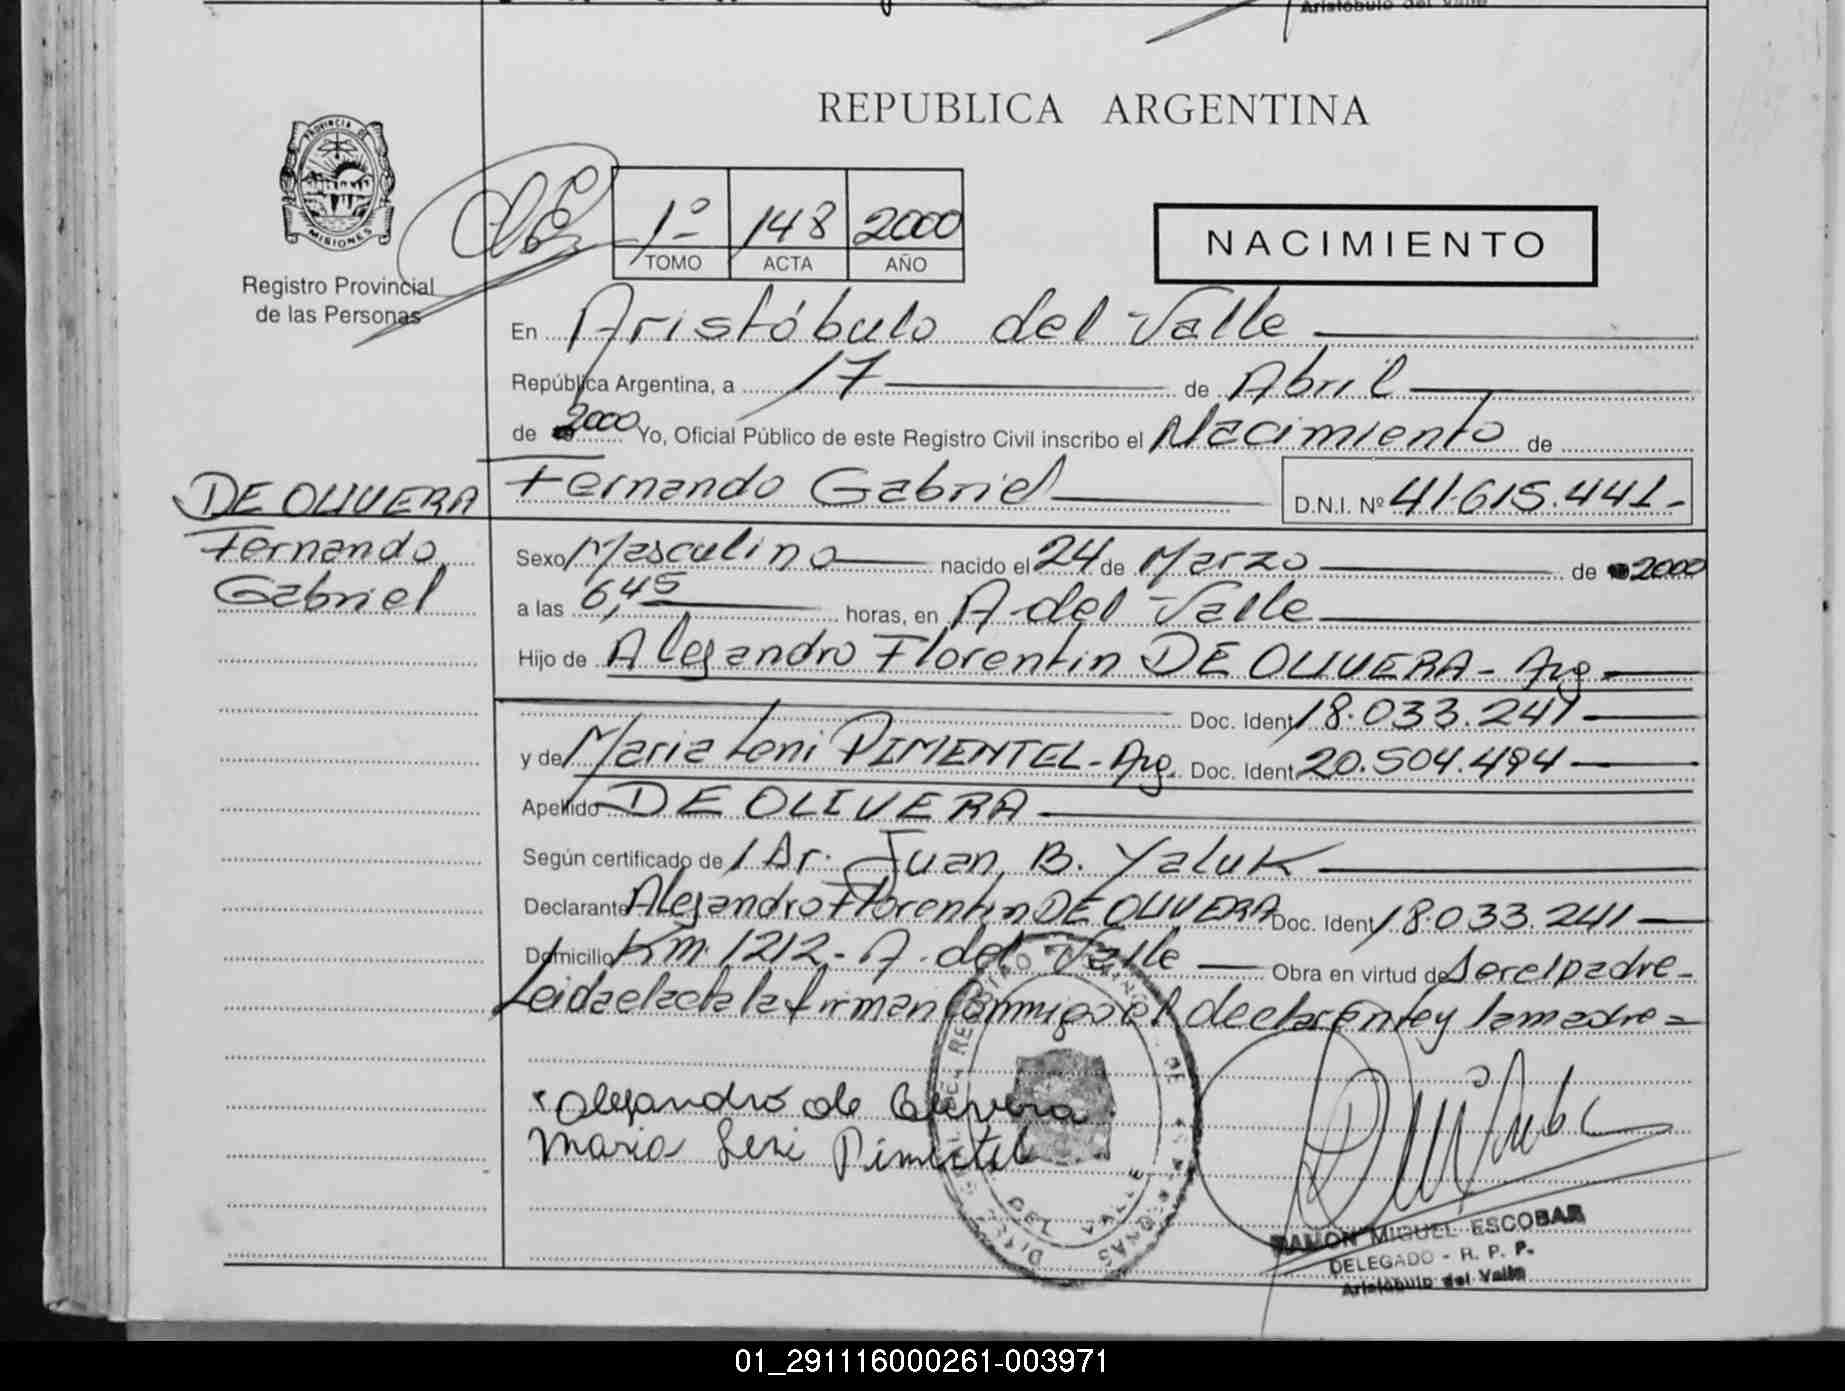 Aristóbulo del Valle
REPUBLICA ARGENTINA
PROVINCIA DE
MISIONES
Registro Provincial
de las Personas
1º 148 2000
TOMO ACTA AÑO
NACIMIENTO
En Aristóbulo del Valle
República Argentina, a 17 de Abril
de 2000 Yo, Oficial Público de este Registro Civil inscribo el Nacimiento de
DE OLIVERA
Fernando
Gabriel
Fernando Gabriel D.N.I. Nº 41.615.441-
Sexo Masculino nacido el 24 de Marzo de 2000
a las 6,45 horas, en A. del Valle
Hijo de Alejandro Florentin DE OLIVERA - Arg
Doc. Ident 18.033.241
y de Maria Leni PIMENTEL - Arg. Doc. Ident 20.504.494
Apellido DE OLIVERA
Según certificado de Dr. Juan B. Yaluk
Declarante Alejandro Florentin DE OLIVERA Doc. Ident 18.033.241
Domicilio Km. 1212 - A. del Valle Obra en virtud de Ser el padre -
Leida el acta la firman conmigo el declarente y la madre =
Alejandro de Olivera
Maria Leni Pimentel
DEL VALLE
RAMON MIGUEL ESCOBAR
DELEGADO - R. P. P.
Aristóbulo del Valle
01_291116000261-003971